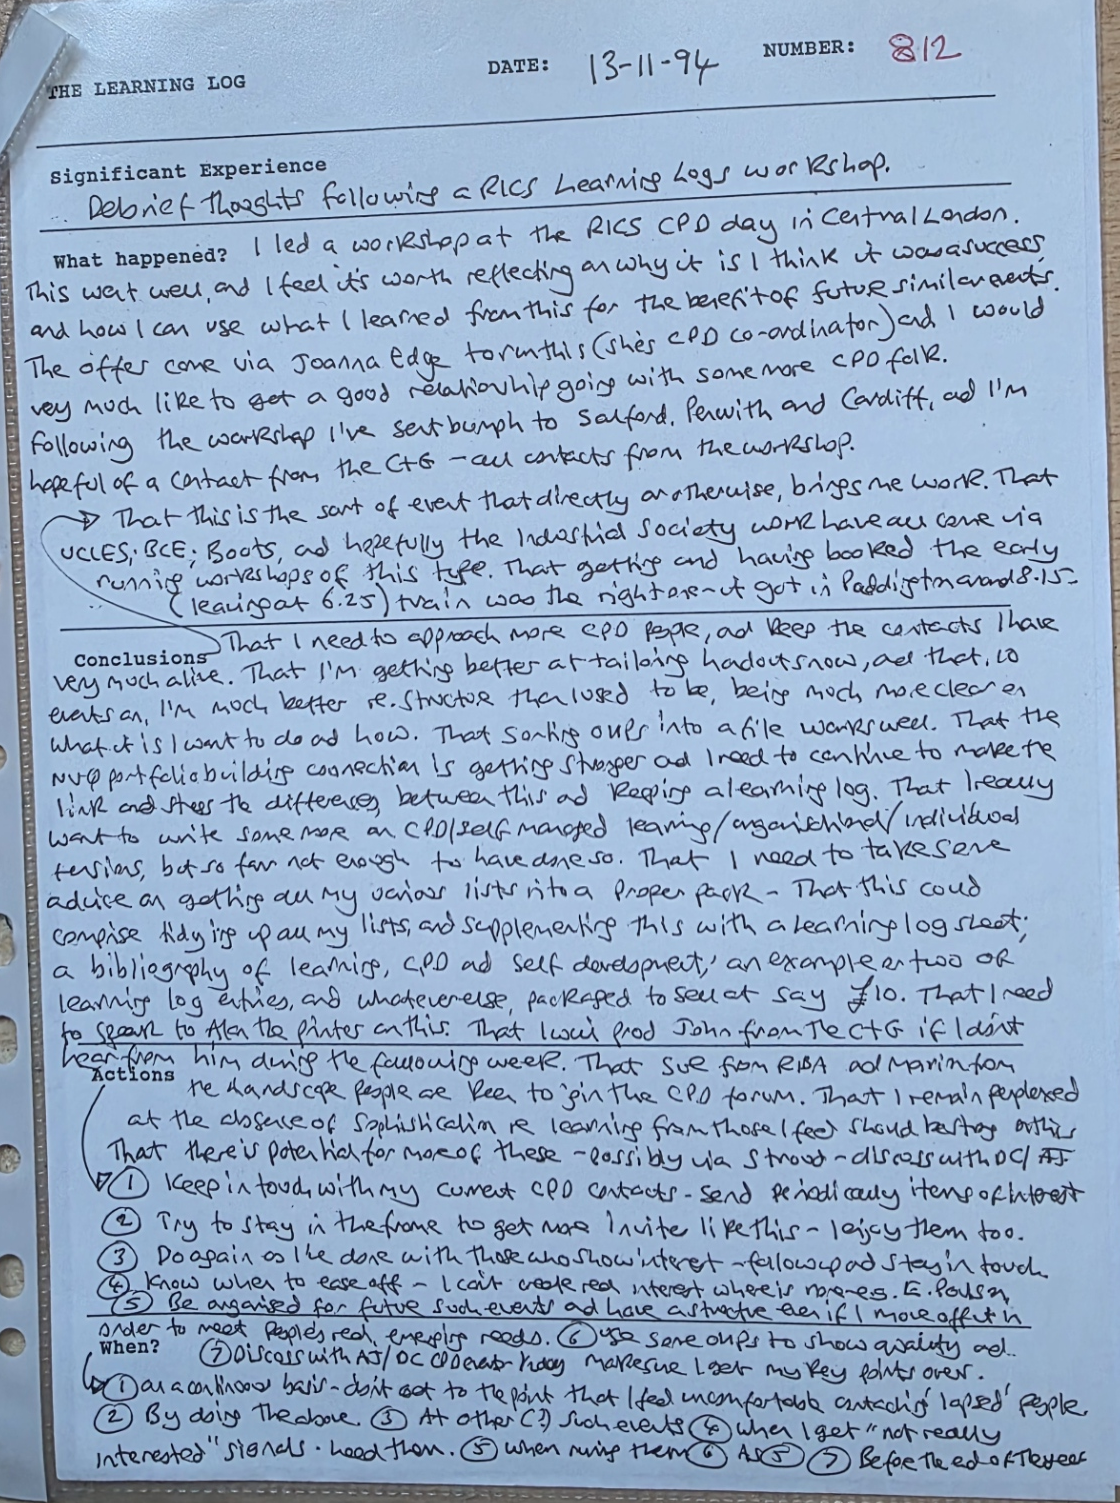 THE LEARNING LOG DATE: 13-11-94 NUMBER: 812
Significant Experience
Debrief thoughts following a RICS Learning Logs workshop.
What happened? I led a workshop at the RICS CPD day in Central London.
This went well, and I feel it's worth reflecting on why it is I think it was a success,
and how I can use what I learned from this for the benefit of future similar events.
The offer came via Joanna Edge to run this (she's CPD co-ordinator) and I would
very much like to get a good relationship going with some more CPD folk.
Following the workshop I've sent bumph to Salford, Penwith and Cardiff, and I'm
hopeful of a contact from the C+G - all contacts from the workshop.
That this is the sort of event that directly or otherwise, brings me work. That
UCLES; BCE; Boots, and hopefully the Industrial Society work have all come via
running workshops of this type. That getting and having booked the early
(leaving at 6.25) train was the right one - it got in Paddington around 8.15.
Conclusions That I need to approach more CPD people, and keep the contacts I have
very much alive. That I'm getting better at tailoring handouts now, and that, as
events on, I'm much better re. structure than I used to be, being much more clear on
what it is I want to do and how. That sorting OHPs into a file works well. That the
NVQ portfolio building connection is getting stronger and I need to continue to make the
link and stress the differences between this and keeping a learning log. That I really
want to write some more on CPD/self managed learning/organisational/individual
tensions, but so far not enough to have done so. That I need to take some
advice on getting all my various lists into a proper pack - That this could
comprise tidying up all my lists, and supplementing this with a learning log sheet;
a bibliography of learning, CPD and self development; an example or two of
learning log entries, and whatever else, packaged to sell at say £10. That I need
to speak to Alan the printer on this. That I will prod John from the C+G if I don't
hear from him during the following week. That Sue from RIBA and from
Actions the Landscape people are keen to join the CPD forum. That I remain perplexed
at the absence of sophistication re learning from those I feel should be strong on this
That there is potential for more of these - possibly via Stroud - discuss with DC/AJ
① Keep in touch with my current CPD contacts - send periodically items of interest
② Try to stay in the frame to get more invites like this - I enjoy them too.
③ Do again as I've done with those who show interest - follow up and stay in touch.
④ Know when to ease off - I can't create real interest where is none e.g. E.
⑤ Be organised for future such events and have a structure even if I move off it in
order to meet people's real, emerging needs. ⑥ Use some OHPs to show quality and
When? ⑦ Discuss with AJ/DC make sure I get my key points over.
① On a continuous basis - don't get to the point that I feel uncomfortable contacting 'lapsed' people
② By doing the above. ③ At other (?) such events ④ When I get "not really
interested" signals. heed them. ⑤ When running them ⑥ As ⑤ ⑦ Before the end of the year